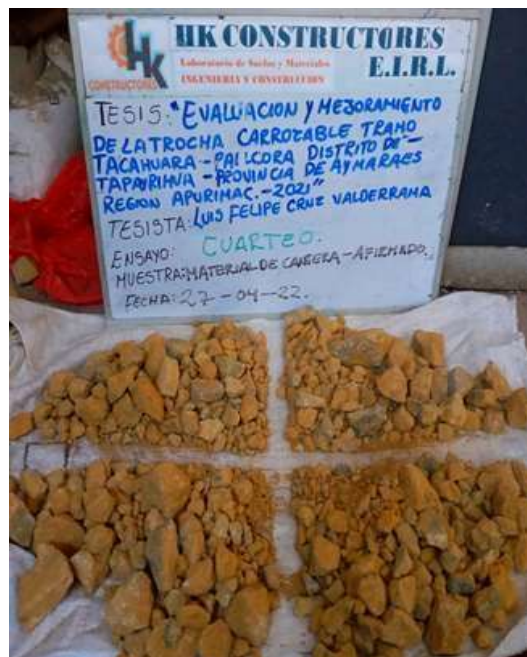 HK
CONSTRUCTORES
HK CONSTRUCTORES
E.I.R.L.
Laboratorio de Suelos y Materiales
INGENIERIA Y CONSTRUCCION
TESIS: "EVALUACION Y MEJORAMIENTO
DE LA TROCHA CARROZABLE TRAMO
TACAHUARA - PALLCORA DISTRITO DE -
TAPAYRIHUA - PROVINCIA DE AYMARAES
REGION APURIMAC. - 2021"
TESISTA: LUIS FELIPE CRUZ VALDERRAMA
ENSAYO: CUARTEO.
MUESTRA: MATERIAL DE CANTERA - AFIRMADO.
FECHA: 27-04-22.